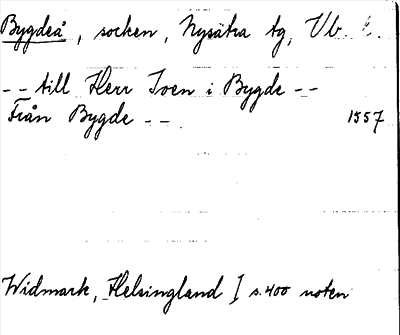 Bygdeå, socken, Nysätra tg, Vb. l.
-- till Herr Joen i Bygde --
Från Bygde -- 1557
Widmark, Helsingland I s. 400 noten